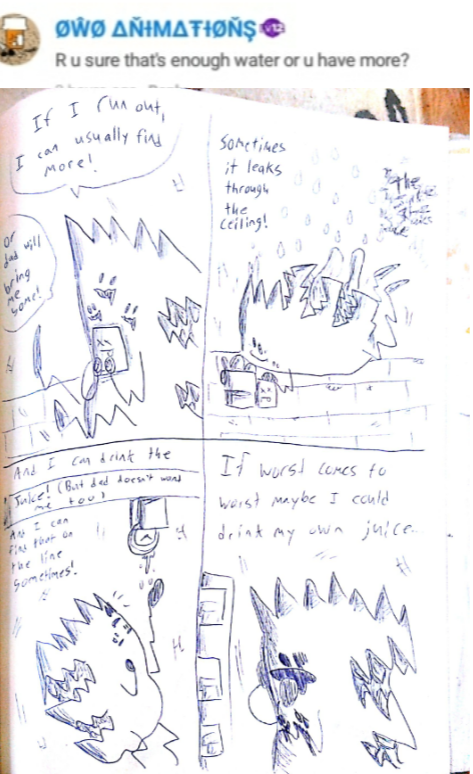 ØŴØ ΔŇƗMΔŦƗØŇŞ LV12
R u sure that's enough water or u have more?
If I run out,
I can usually find
more!
or
dad will
bring
me
some!
Sometimes
it leaks
through
the
ceiling!
And I can drink the
Juice! (But dad doesn't want
me too)
And I can
find that on
the line
sometimes!
If worst comes to
worst maybe I could
drink my own juice...